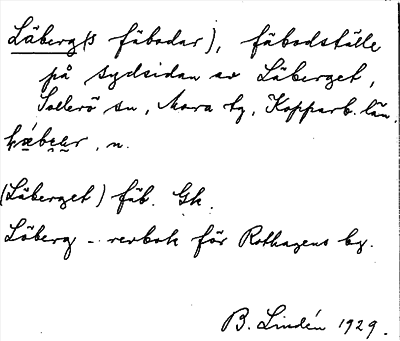 Läberg(s fäbodar), fäbodställe
på sydsidan av Läberget,
Sollerö sn, Mora tg, Kopparb. län.
n.
(Läberget) fäb. Gk.
Löberg - revbok för Rothagens by.
B. Lindén 1929.